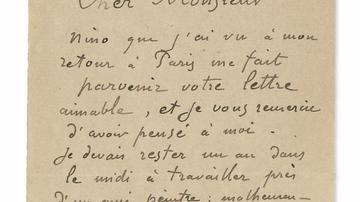 Cher Monsieur
Nino que j'ai vu à mon
retour à Paris me fait
parvenir votre lettre
aimable, et je vous remercie
d'avoir pensé à moi.
Je devais rester un an dans
le midi à travailler près
d'un ami peintre ; malheureu-